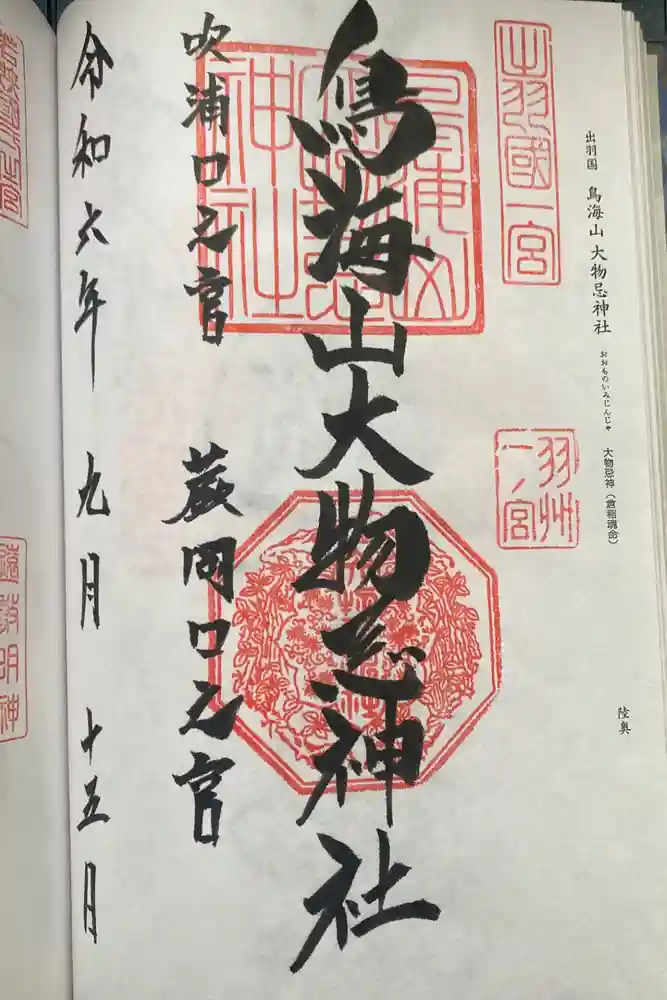 出羽国 鳥海山 大物忌神社 おおものいみじんじゃ 大物忌神(倉稲魂命)
陸奥
出羽國一宮
羽州
一ノ宮
鳥海山大物忌神社
吹浦口之宮 蕨岡口之宮
令和六年 九月 十五日
明神